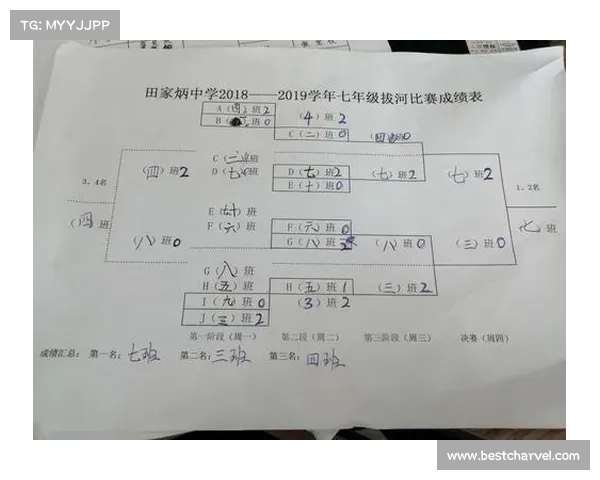 TG: MYYJJPP
田家炳中学2018——2019学年七年级拔河比赛成绩表
A（四）班2
B 班0
（4）班2
C（二）班0
（四）班0
C（二）班
（四）班2
D 班
D（七）班2
E（十）班0
（七）班2
（七）班2
3、4名
1、2名
（四）班
七班
E（十）班
F（六）班
F（六）班0
G（八）班2
（八）班0
（八）班0
（三）班0
G（八）班
H（五）班
H（五）班1
（三）班2
I（九）班0
（3）班2
J（三）班2
第一阶段（周一）
第二段（周二）
第三阶段（周三）
决赛（周四）
成绩汇总： 第一名：七班 第二名：三班 第三名：四班
www.bestcharvel.com